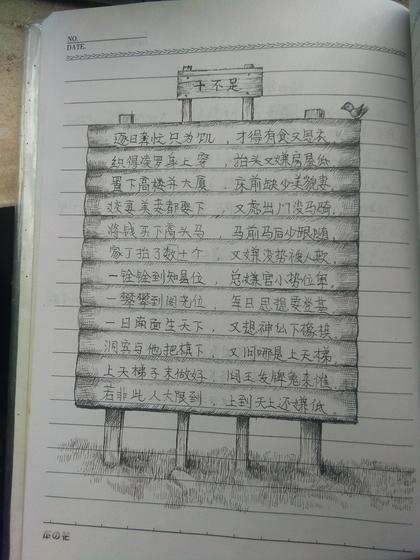 NO.
DATE.
十不足
逐日奔忙只为饥，才得有食又思衣。
织得凌罗身上穿，抬头又嫌房屋低
置下高楼并大厦，床前缺少美貌妻
娇妻美妾都娶下，又虑出门没马骑。
将钱买下高头马，马前马后少跟随
家丁招了数十个，又嫌没势被人欺。
一铨铨到知县位，总嫌官小势位卑
一攀攀到阁老位，每日思想要登基
一日南面坐天下，又想神仙下象棋
洞宾与他把棋下，又问哪是上天梯
上天梯子未做好，阎王发牌鬼来催
若非此人大限到，上到天上还嫌低